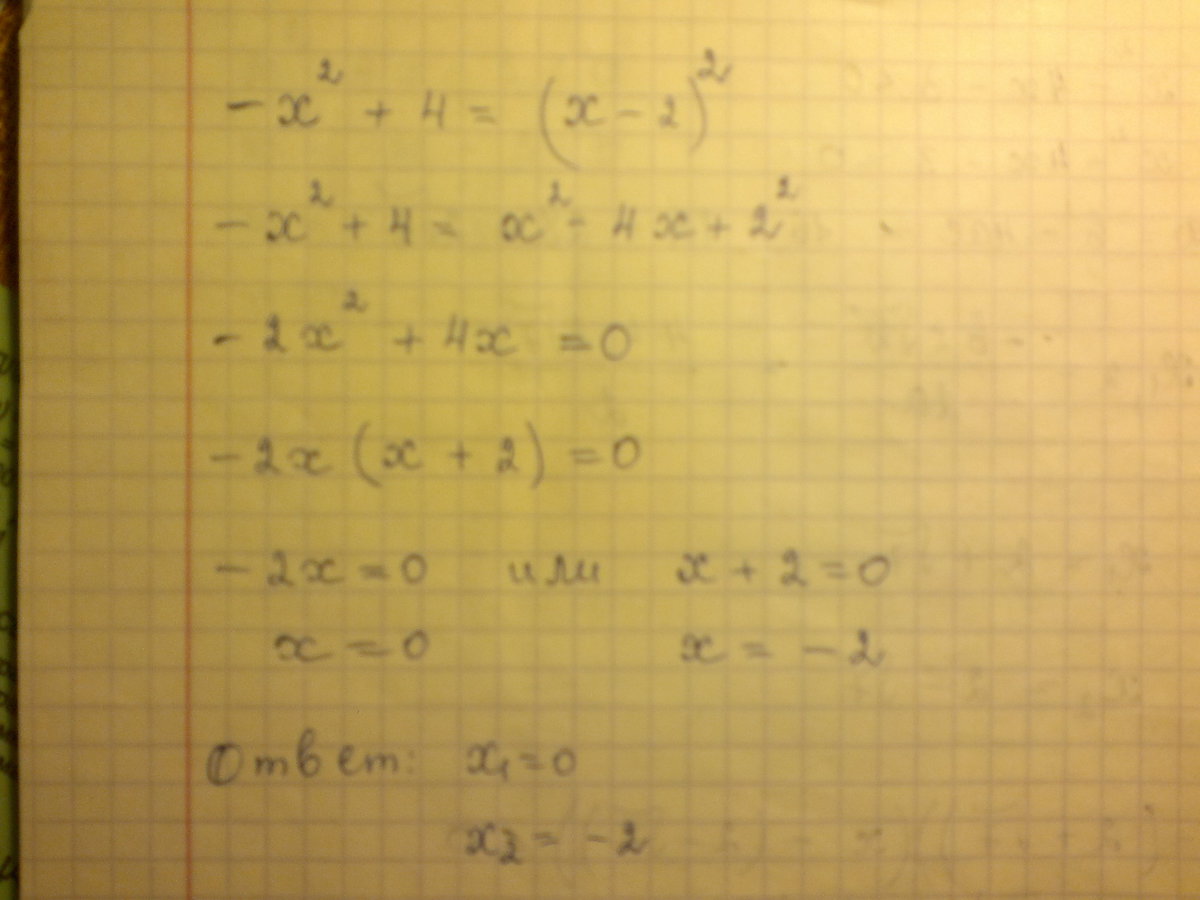 -x² + 4 = (x - 2)²
-x² + 4 = x² - 4x + 2²
-2x² + 4x = 0
-2x (x + 2) = 0
-2x = 0 или x + 2 = 0
x = 0 x = -2
Ответ: x₁ = 0
x₂ = -2